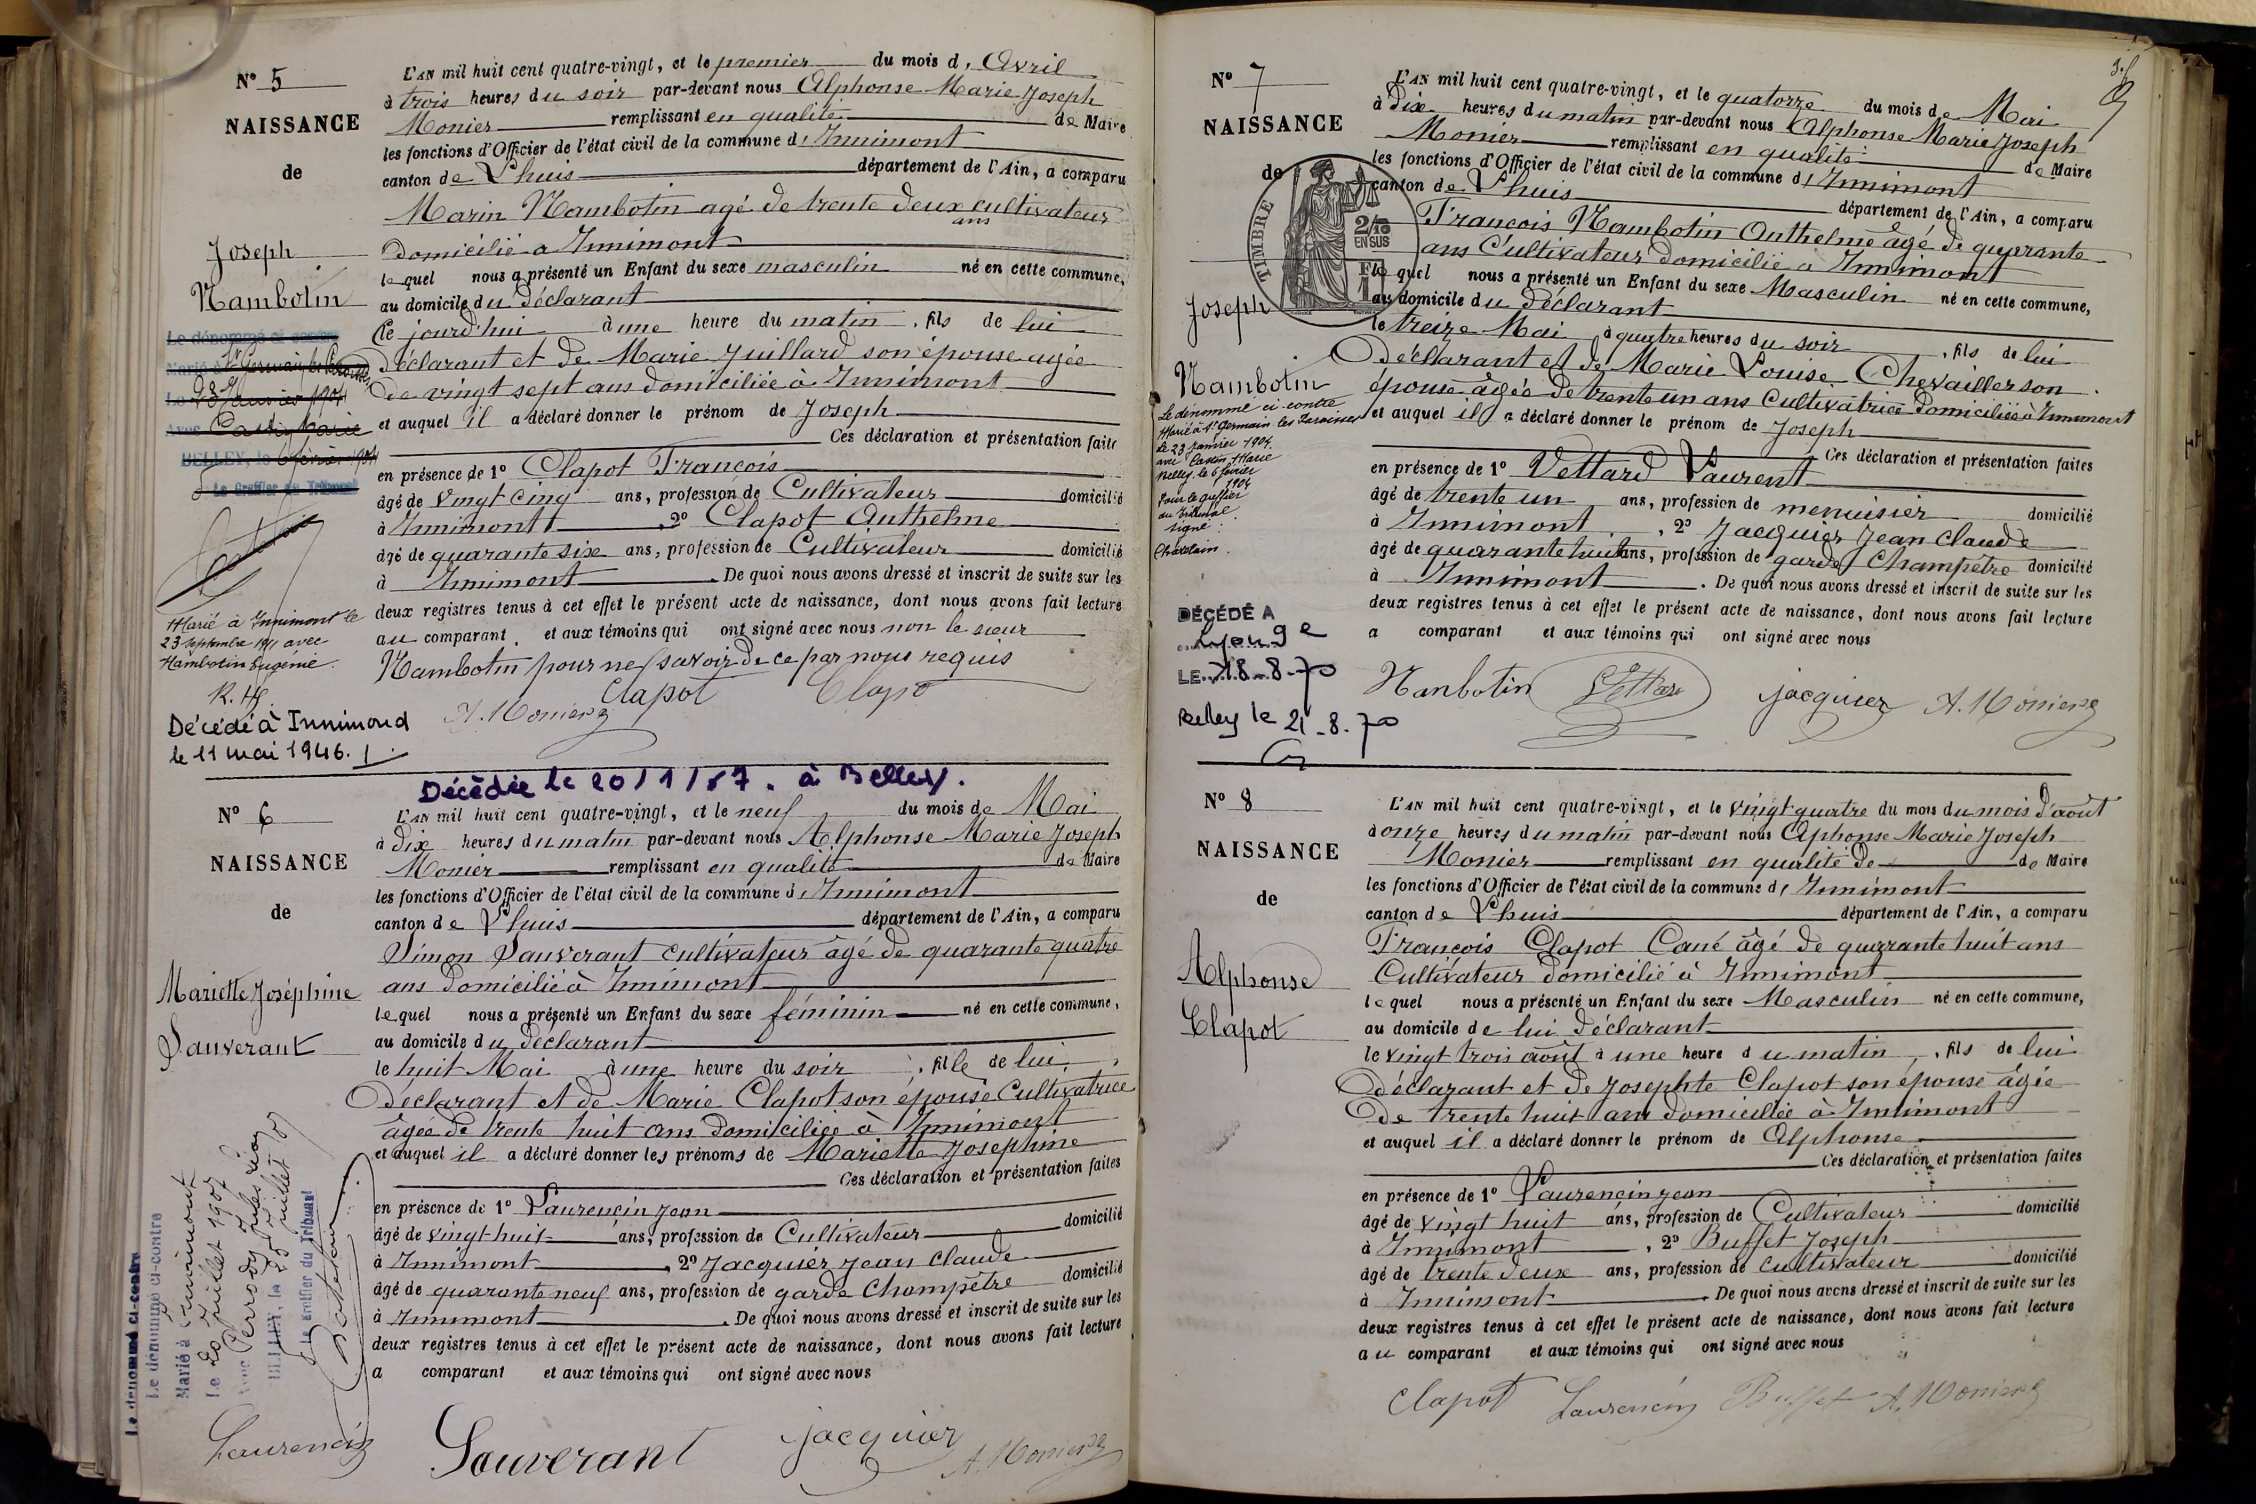 N° 5
NAISSANCE
de
Joseph
Nambotin
Le dénommé ci-contre
Marié à St Germain les Paroisses
Le 23 Janvier 1904
Avec Castin Marie
BELLEY, le 6 février 1904
Le Greffier du Tribunal
Marié à Innimont le
23 septembre 1911 avec
Nambotin Eugénie.
Décédé à Innimond
le 11 mai 1946.
L'AN mil huit cent quatre-vingt, et le premier du mois d, Avril
à trois heures du soir par-devant nous Alphonse Marie Joseph
Monier remplissant en qualité de Maire
les fonctions d'Officier de l'état civil de la commune d'Innimont
canton de Lhuis département de l'Ain, a comparu
Marin Nambotin agé de trente deux cultivateur
ans
domicilié a Innimont
le quel nous a présenté un Enfant du sexe masculin né en cette commune,
au domicile du déclarant
Ce jourd'hui à une heure du matin, fils de lui
déclarant et de Marie Juillard son épouse agée
de vingt sept ans domiciliée à Innimont
et auquel il a déclaré donner le prénom de Joseph
Ces déclaration et présentation faites
en présence de 1° Clapot François
âgé de vingt cinq ans, profession de Cultivateur domicilié
à Innimont, 2° Clapot Anthelme
âgé de quarante six ans, profession de Cultivateur domicilié
à Innimont. De quoi nous avons dressé et inscrit de suite sur les
deux registres tenus à cet effet le présent acte de naissance, dont nous avons fait lecture
au comparant, et aux témoins qui ont signé avec nous non le sieur
Nambotin pour ne savoir de ce par nous requis
Clapot Clapo
A. Monier
N° 6
NAISSANCE
de
Mariette Joséphine
Sauverant
Le dénommé ci-contre
Le dénommé ci-contre
Marié à Innimont
Le 20 Juillet 1907
avec Perrody Jules Léon
BELLEY, le 25 Juillet 07
Le Greffier du Tribunal
Décédée le 20/1/67. à Belley.
L'AN mil huit cent quatre-vingt, et le neuf du mois de Mai
à dix heures du matin par-devant nous Alphonse Marie Joseph
Monier remplissant en qualité de Maire
les fonctions d'Officier de l'état civil de la commune d'Innimont
canton de Lhuis département de l'Ain, a comparu
Simon Sauverant cultivateur âgé de quarante quatre
ans domicilié à Innimont
le quel nous a présenté un Enfant du sexe féminin né en cette commune,
au domicile du déclarant
le huit Mai à une heure du soir, fille de lui,
déclarant et de Marie Clapot son épouse Cultivatrice
âgée de trente huit ans domiciliée à Innimont
et auquel il a déclaré donner les prénoms de Mariette Josephine
Ces déclaration et présentation faites
en présence de 1° Laurencin Jean
âgé de vingt-huit ans, profession de Cultivateur domicilié
à Innimont, 2° Jacquier Jean Claude
âgé de quarante neuf ans, profession de garde Champêtre domicilié
à Innimont. De quoi nous avons dressé et inscrit de suite sur les
deux registres tenus à cet effet le présent acte de naissance, dont nous avons fait lecture
a comparant et aux témoins qui ont signé avec nous
Laurencin Sauverant Jacquier A. Monier
N° 7
NAISSANCE
de
Joseph
Nambotin
Le dénommé ci-contre
Marié à St Germain les Paroisses
le 23 Janvier 1904
avec Castin Marie
Belley, le 6 février
1904
Pour le greffier
du Tribunal
signé :
Chatelain.
DÉCÉDÉ A
Lyon 9e
LE 18-8-70
Belley le 21-8-70
TIMBRE
2/10
EN SUS
F
1
L'AN mil huit cent quatre-vingt, et le quatorze du mois de Mai
à Dix heures du matin par-devant nous Alphonse Marie Joseph
Monier remplissant en qualité de Maire
les fonctions d'Officier de l'état civil de la commune d'Innimont
canton de Lhuis département de l'Ain, a comparu
François Nambotin Anthelme âgé de quarante
ans Cultivateur domicilié à Innimont
le quel nous a présenté un Enfant du sexe Masculin né en cette commune,
au domicile du déclarant
le treize Mai à quatre heures du soir, fils de lui
déclarant et de Marie Louise Chevailler son
épouse âgée de trente un ans Cultivatrice domiciliée à Innimont
et auquel il a déclaré donner le prénom de Joseph
Ces déclaration et présentation faites
en présence de 1° Vettard Laurent
âgé de trente un ans, profession de menuisier domicilié
à Innimont, 2° Jacquier Jean Claude
âgé de quarante huit ans, profession de garde Champêtre domicilié
à Innimont. De quoi nous avons dressé et inscrit de suite sur les
deux registres tenus à cet effet le présent acte de naissance, dont nous avons fait lecture
a comparant et aux témoins qui ont signé avec nous
Nanbotin Vettard Jacquier A. Monier
N° 8
NAISSANCE
de
Alphonse
Clapot
L'AN mil huit cent quatre-vingt, et le vingt quatre du mois du mois d'août
à onze heures du matin par-devant nous Aphonse Marie Joseph
Monier remplissant en qualité de de Maire
les fonctions d'Officier de l'état civil de la commune d'Innimont
canton de Lhuis département de l'Ain, a comparu
François Clapot Cané âgé de quarante huit ans
Cultivateur domicilié à Innimont
le quel nous a présenté un Enfant du sexe Masculin né en cette commune,
au domicile de lui déclarant
le vingt trois août à une heure du matin, fils de lui
déclarant et de Josephte Clapot son épouse âgée
de trente huit ans domiciliée à Innimont
et auquel il a déclaré donner le prénom de Alphonse
Ces déclaration et présentation faites
en présence de 1° Laurencin Jean
âgé de vingt huit ans, profession de Cultivateur domicilié
à Innimont, 2° Buffet Joseph
âgé de trente deux ans, profession de cultivateur domicilié
à Innimont. De quoi nous avons dressé et inscrit de suite sur les
deux registres tenus à cet effet le présent acte de naissance, dont nous avons fait lecture
au comparant et aux témoins qui ont signé avec nous
Clapot Laurencin Buffet A. Monier